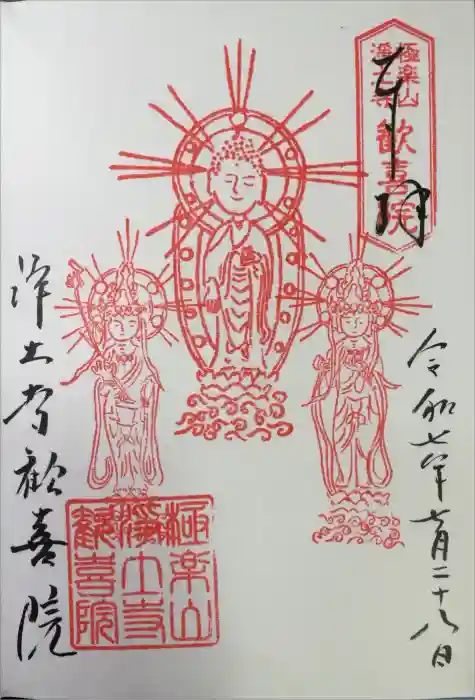 奉拝
極楽山
浄土寺
歓喜院
令和七年七月二十八日
浄土寺歓喜院
極楽山
浄土寺
歓喜院